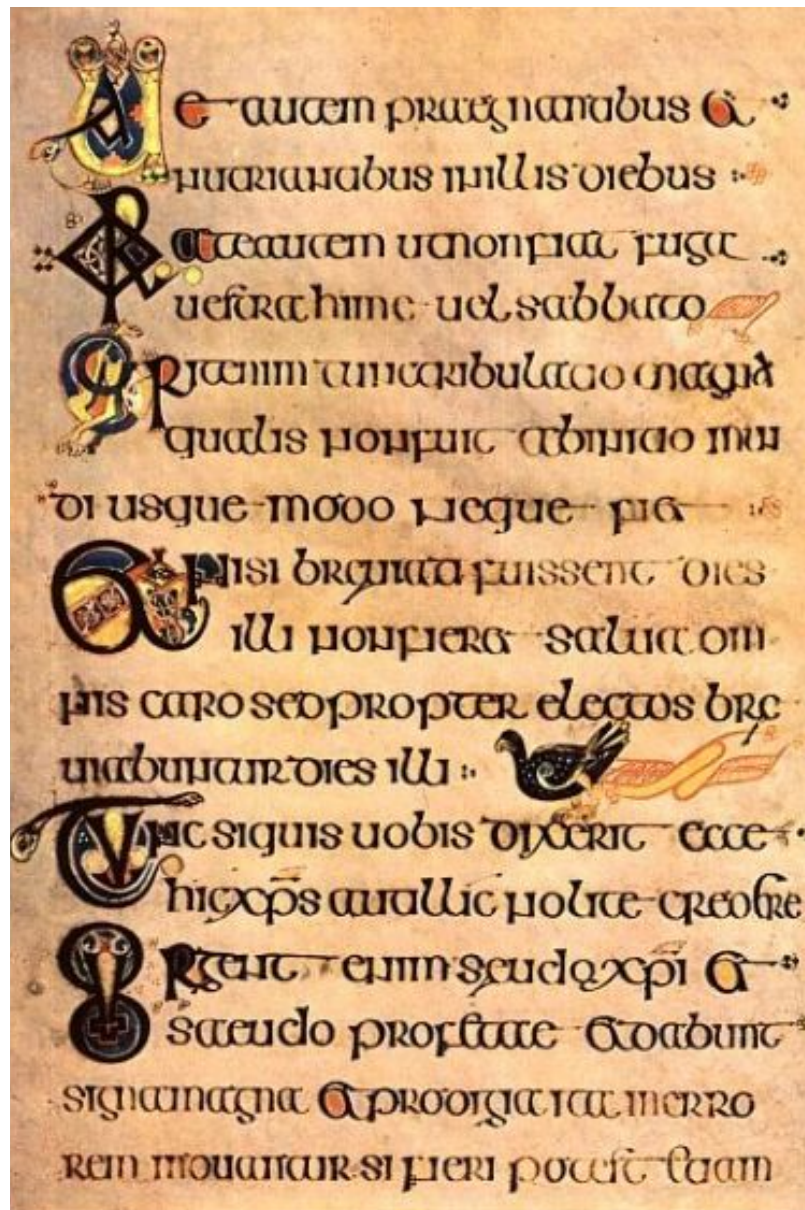 Uae autem praegnantibus et
nutriantibus in illis diebus
Orate autem ut non fiat fuga
uestra hieme uel sabbato
Erit enim tunc tribulatio magna
qualis non fuit ab initio mun
di usque modo neque fiet
Et nisi breuiati fuissent dies
illi non fieret salua om
nis caro sed propter electos bre
uiabuntur dies illi
Tunc si quis uobis dixerit ecce
hic xps aut illic nolite credere
Surgent enim seudo xpi et
saeudo profetae et dabunt
signa magna et prodigia ita in erro
rem moueantur si fieri potest etiam